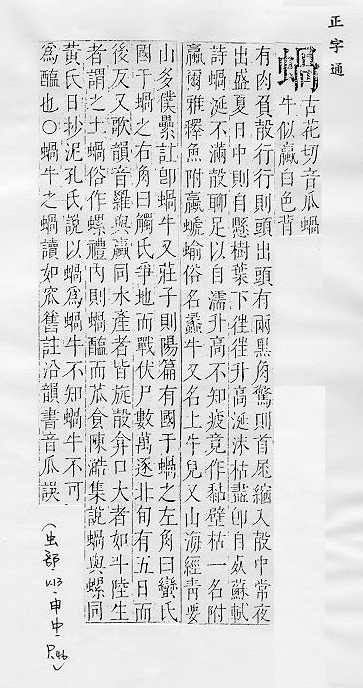 正字通
蝸
古花切音瓜蝸
牛似蠃白色背
有肉負殼行行則頭出頭有兩黑角驚則首尾縮入殼中常夜
出盛夏日中則自懸樹葉下徃徃升高涎沫枯盡卽自死蘇軾
詩蝸涎不滿殼聊足以自濡升高不知疲竟作黏壁枯一名附
蠃爾雅釋魚附蠃螔蝓俗名蠡牛又名土牛兒又山海經靑要
山多僕纍註卽蝸牛又莊子則陽篇有國于蝸之左角曰蠻氏
國于蝸之右角曰觸氏爭地而戰伏尸數萬逐北旬有五日而
後反又歌韻音羅與蠃同水產者皆旋殼弇口大者如斗陸生
者謂之土蝸俗作螺禮內則蝸醢而苽食陳澔集說蝸與螺同
黃氏日抄泥孔氏說以蝸爲蝸牛不知蝸牛不可
爲醢也○蝸牛之蝸讀如窊舊註沿韻書音瓜誤
(虫部·U13·申中·P.46)